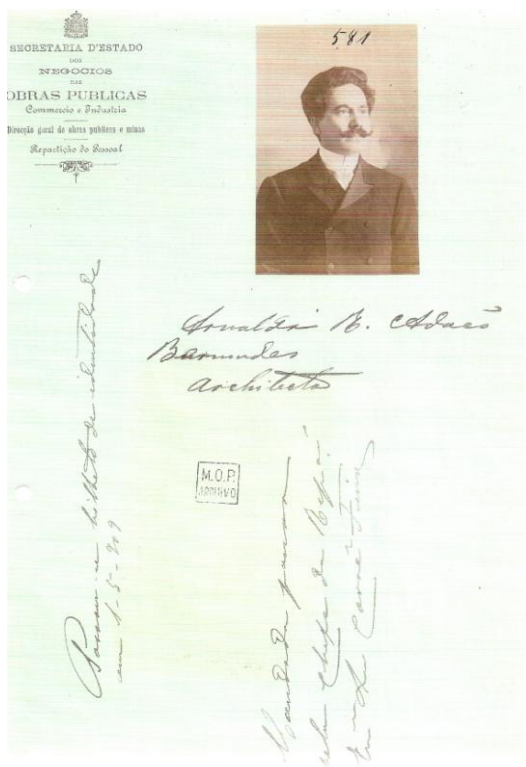 SECRETARIA D'ESTADO
DOS
NEGOCIOS
DAS
OBRAS PUBLICAS
Commercio e Industria
Direcção geral de obras publicas e minas
Repartição do Pessoal
581
Arnaldo R. Adães
Bermudes
Architecto
M.O.P.
ARCHIVO
Passou-se bilhete de identidade
em 1-5-909
Mandado passar
pelo Chefe da Rep.